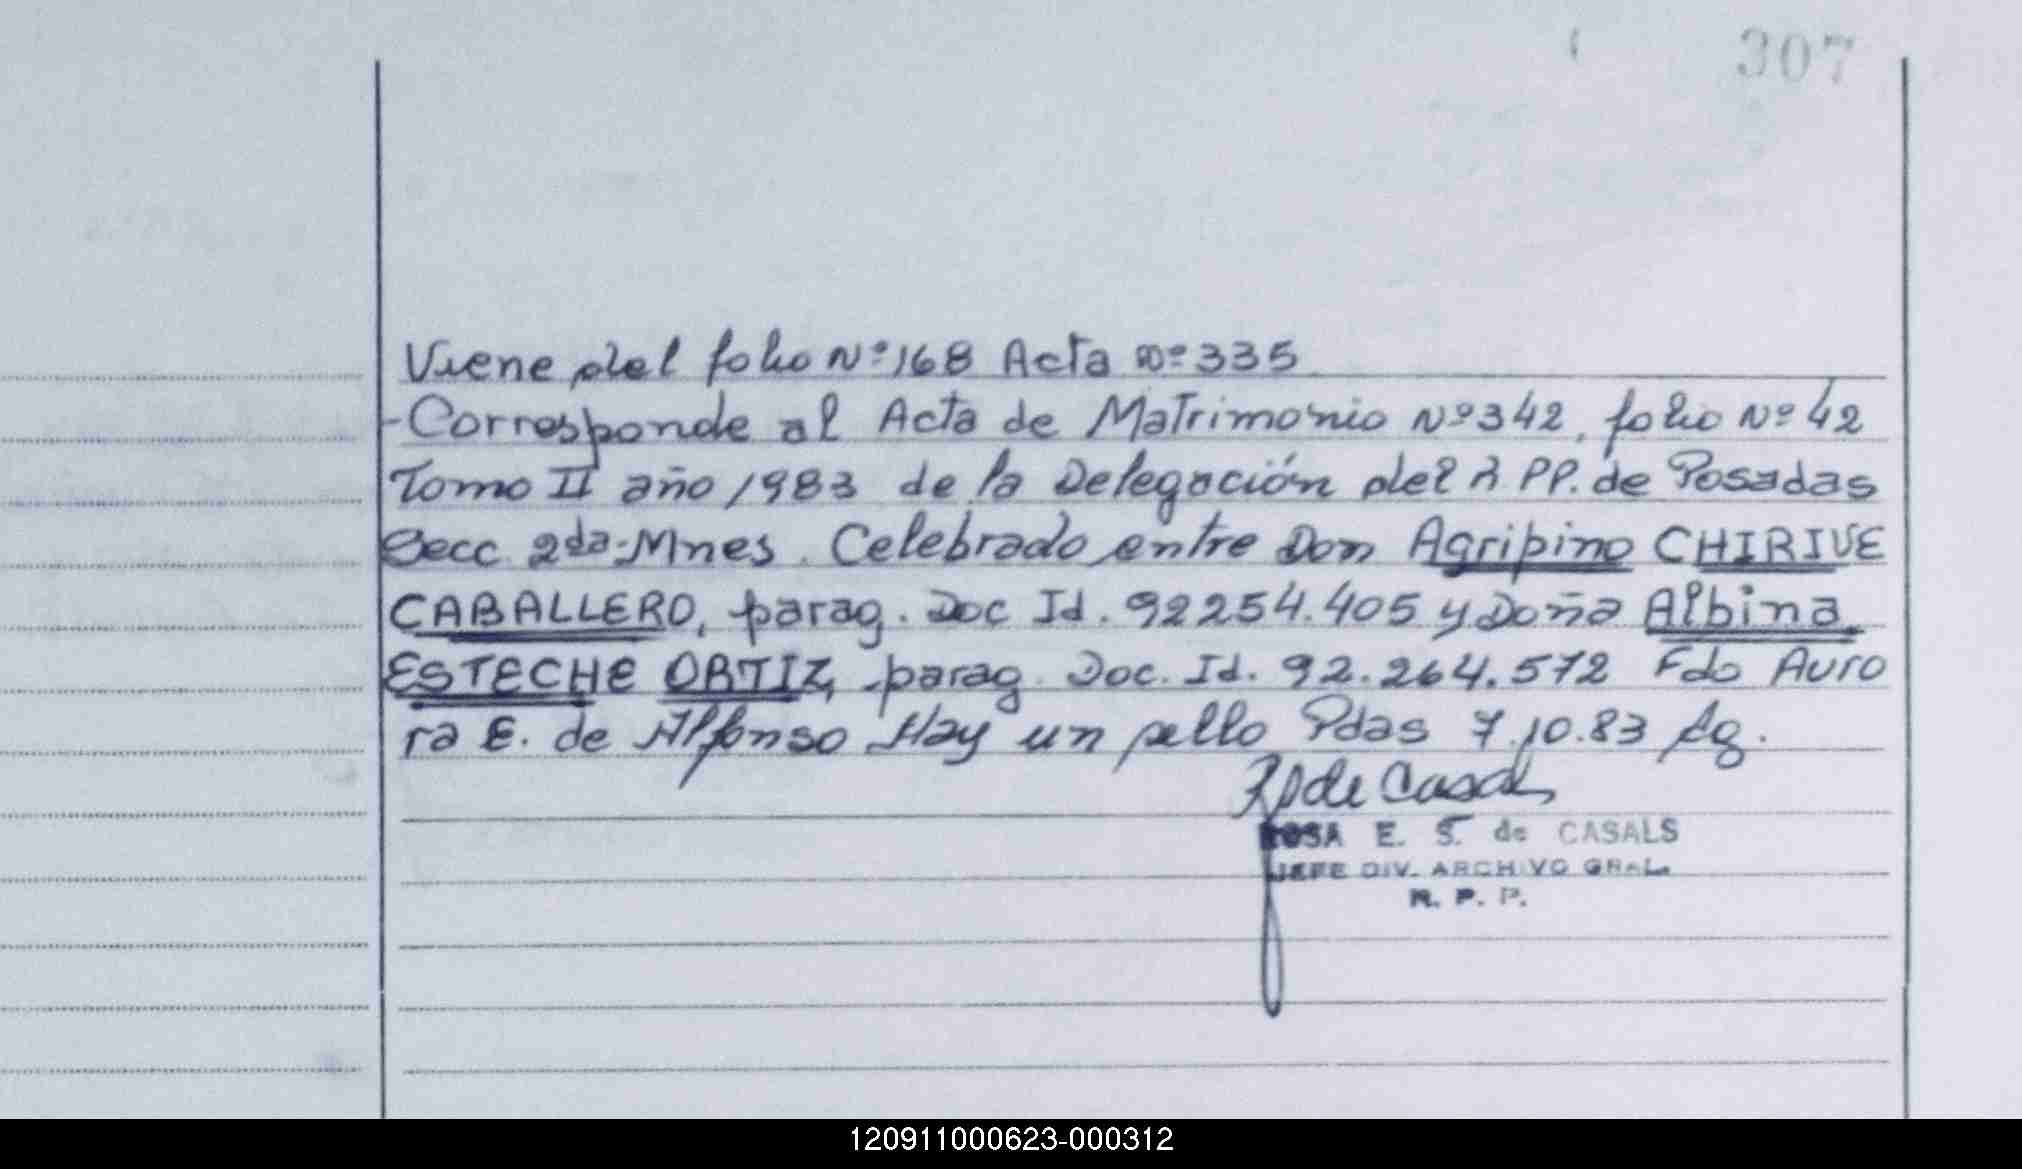 307
Viene del folio Nº 168 Acta Nº 335
-Corresponde al Acta de Matrimonio Nº 342, folio Nº 42
Tomo II año 1983 de la Delegación del R PP. de Posadas
Secc. 2da-Mnes. Celebrado entre Don Agripino CHIRIVE
CABALLERO, parag. Doc Id. 92254.405 y Doña Albina
ESTECHE ORTIZ, parag. Doc. Id. 92.264.572 Fdo Auro
ra E. de Alfonso Hay un sello Pdas 7.10.83 Ag.
de Casals
ROSA E. S. de CASALS
JEFE DIV. ARCHIVO GRAL.
R. P. P.
120911000623-000312